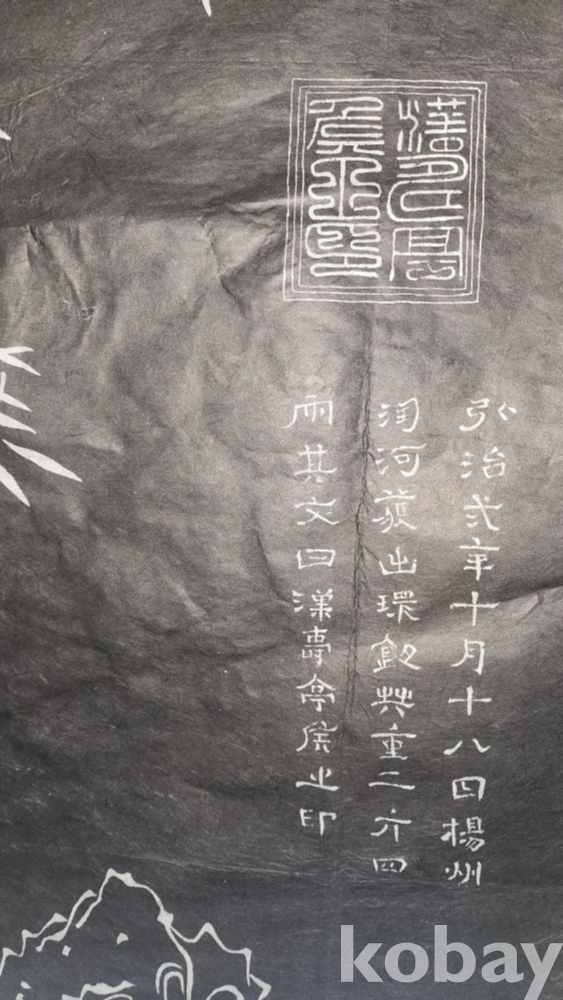 漢壽亭
侯之印
弘治弍年十月十八日楊州
淘河獲出環鈕共重二斤四
兩其文曰漢壽亭侯之印
kobay